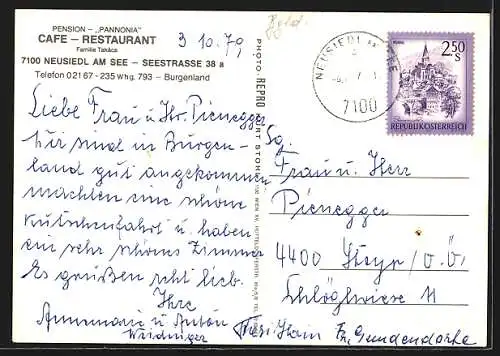 PENSION – „PANNONIA"
CAFE – RESTAURANT
Familie Takács
7100 NEUSIEDL AM SEE – SEESTRASSE 38 a
Telefon 02167 - 235 Whg. 793 – Burgenland
3 10. 79
Liebe Frau u Hr. Pienegger
Wir sind in Burgen-
land gut angekommen
machten eine schöne
Kutschenfahrt u. haben
ein sehr schönes Zimmer
Es grüßen recht lieb.
Ihre
Annemarie u Anton
Weidinger
PHOTO REPRO
NEUSIEDL AM SEE
7100
2.50
S
REPUBLIK ÖSTERREICH
Sg.
Frau u. Herr
Pienegger
4400 Steyr / O.Ö.
Schlöglwiese 11